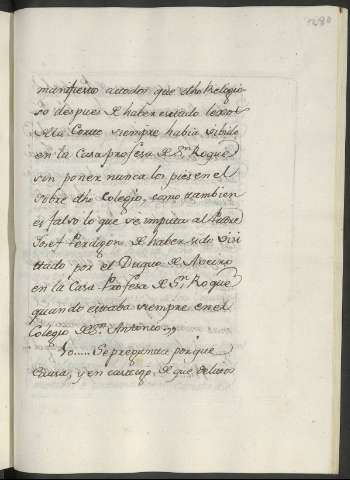 1280
manifiesto a todos que dho Relogio-
so despues de haber estado lexos
de la Corte siempre habia vibido
en la Casa profesa de Sn. Roque
sin poner nunca los pies en el
sobre dho Colegio, como tambien
es falso lo que se imputa al Padre
Josef Perdigon de haber sido visi-
tado por el Duque de Aveiro
en la Casa Profesa de Sn. Roque
quando estaba siempre en el
Colegio de Sn. Antonio.
Yo..... Se pregunta por que
causa, y en castigo de que delitos